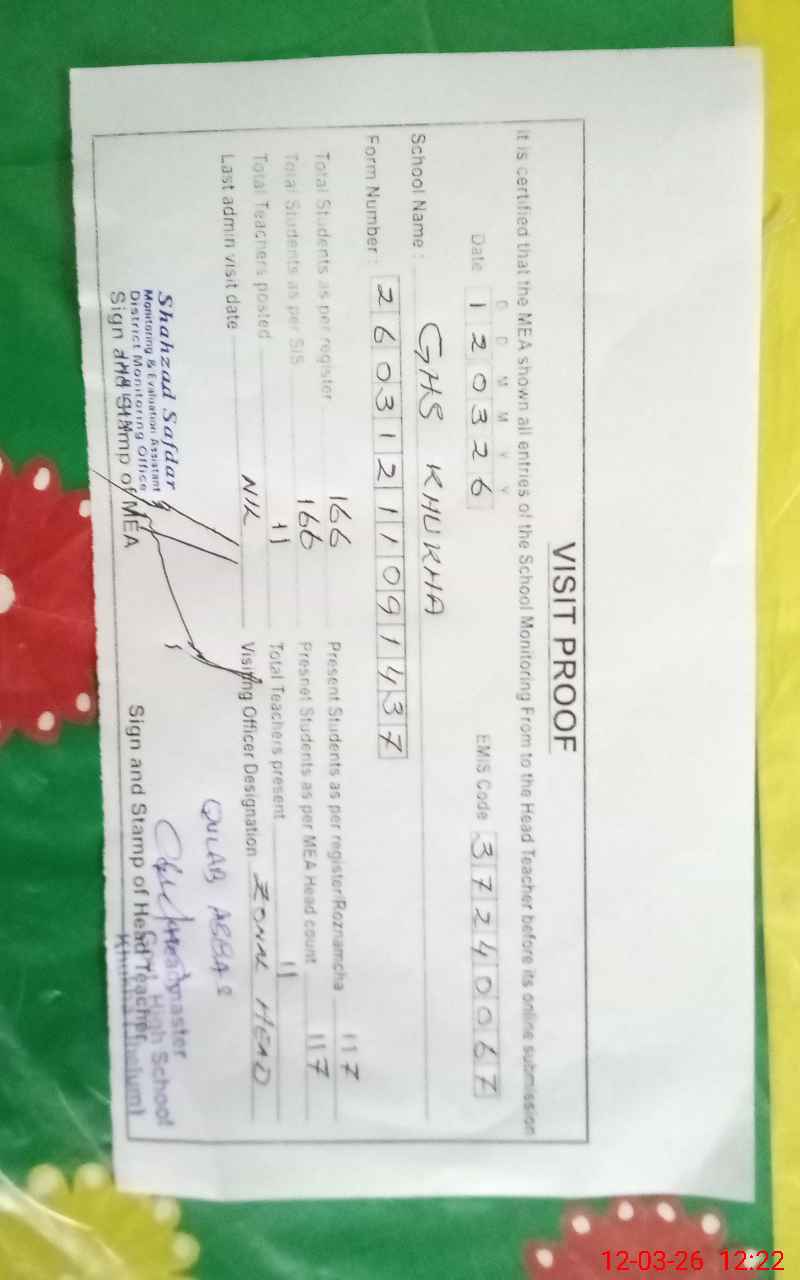 VISIT PROOF
It is certified that the MEA shown all entries of the School Monitoring From to the Head Teacher before its online submission
D D M M Y Y
Date 1 2 0 3 2 6 EMIS Code 3 7 2 4 0 0 6 7
School Name : GHS KHUKHA
Form Number : 2 6 0 3 1 2 1 1 0 9 1 4 3 7
Total Students as per register 166 Present Students as per register/Roznamcha 117
Total Students as per SIS 166 Presnet Students as per MEA Head count 117
Total Teachers posted 11 Total Teachers present 11
Last admin visit date NIL Visiting Officer Designation ZONAL HEAD
QULAB ABBAS
Shahzad Safdar
Monitoring & Evaluation Assistant
District Monitoring Office
Headmaster
High School
Khukha (Jhelum)
Sign and Stamp of MEA Sign and Stamp of Head Teacher
12-03-26 12:22